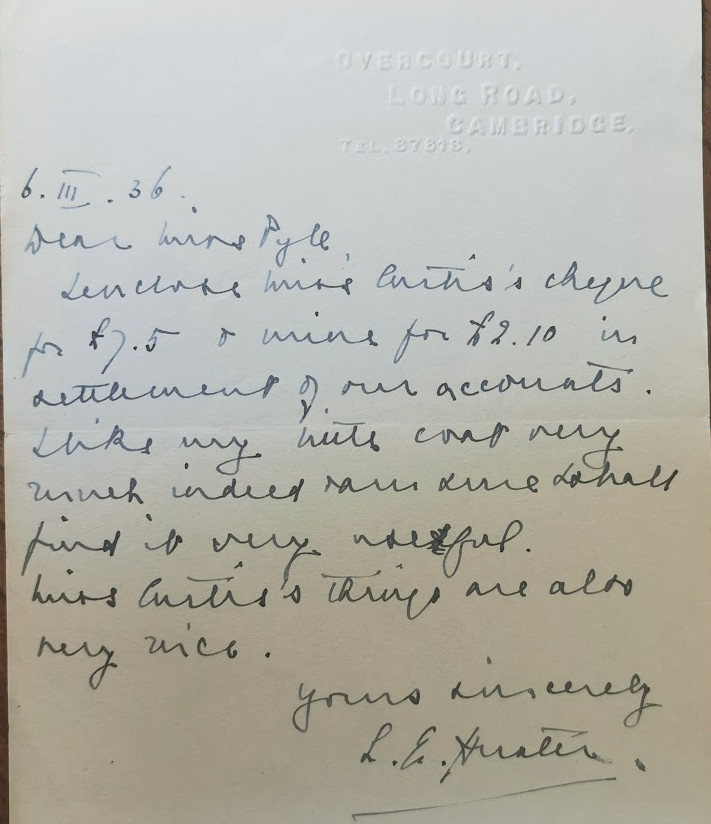 OVERCOURT,
LONG ROAD,
CAMBRIDGE.
TEL. 37313.
6. III. 36.
Dear Miss Pyle
I enclose Miss Curtis's cheque
for £7.5 & mine for £2.10 in
settlement of our accounts.
I like my little coat very
much indeed & am sure I shall
find it very useful.
Miss Curtis's things are also
very nice.
Yours sincerely
L. E. Hunter.